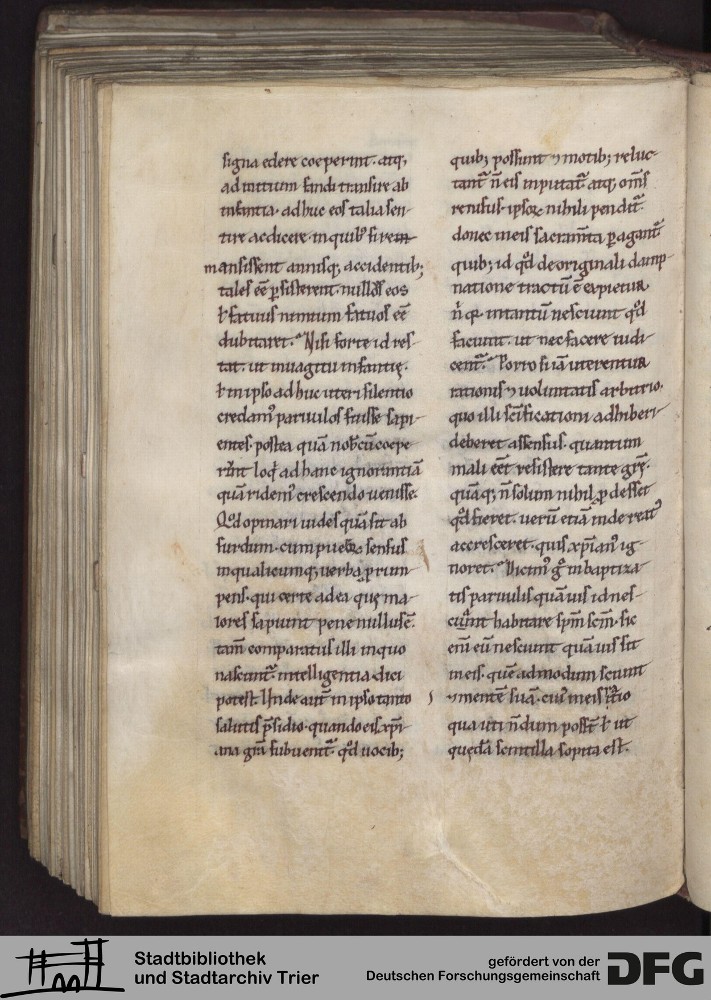 signa edere coeperint. atq;
ad initium fandi transire ab
infantia. adhuc eos talia sen-
tire ac dicere. in quib; si rem-
mansissent annisq; accidentib;
tales eē psisterent. nullꝰ eos
ł fatuus nimium fatuos eē
dubitaret. Nisi forte id res-
tat. ut in uagitu infantię.
ł in ipso adhuc uteri silentio
credamꝰ paruulos fuisse sapi-
entes. postea quā nob̄cū coepe
rīnt loq̇ ad hanc ignorantiā
quā ridemꝰ crescendo uenisse.
Qd̊ opinari uides quā sit ab
surdum. cum pueroꝝ sensus
in qualicumq; uerba prum-
pens. qui certe ad ea quę ma-
iores sapiunt pene nullus ē.
tam̄ comparatus illi in quo
nascunt̄ intelligentia dici
potest. Unde aut̄ in ipso tanto
salutis p̄sidio. quando eis xp̄i-
ana gr̄a subuenit̄. qd̊ uocib;
quib; possunt ⁊ motib; reluc-
tant̄ n̄ eis inputat̄ atq; om̄s
renisus ipsoꝝ nihili pendit̄.
donec in eis sacram̄ta ꝑagant̄
quib; id qd̊ de originali damp-
natione tractū ē expietur
n̄ q̇a intantū nesciunt qd̊
faciunt. ut nec facere iudi-
cent̄. Porro si iā uterentur
rationis ⁊ uoluntatis arbitrio.
quo illi sc̄ificationi adhiberi
deberet assensus. quantum
mali eēt resistere tante gr̄ę.
quāq; n̄ solum nihil ꝓdesset
qd̊ fieret. uerū etiā inde reatꝰ
accresceret. quis xp̄ianꝰ ig-
noret. Dicimꝰ ḡ in baptiza-
tis paruulis quāuis id nes-
ciūnt habitare sp̄m sc̄m. sic
enī eū nesciunt quāuis sit
in eis. quēadmodum sciunt
⁊ mentē suā. cuiꝰ in eis ratio
qua uti n̄dum poss̄t ł ut
quędā scintilla sopita est.
Stadtbibliothek
und Stadtarchiv Trier
gefördert von der
Deutschen Forschungsgemeinschaft
DFG